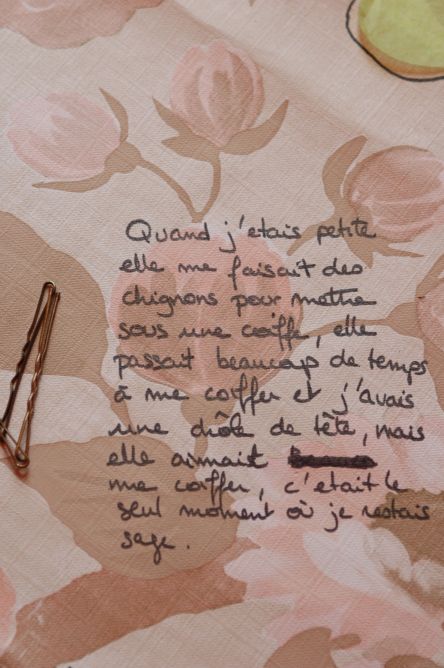 Quand j'etais petite
elle me faisait des
chignons pour mettre
sous une coiffe, elle
passait beaucoup de temps
à me coiffer et j'avais
une drôle de tête, mais
elle aimait
me coiffer, c'était le
seul moment où je restais
sage.